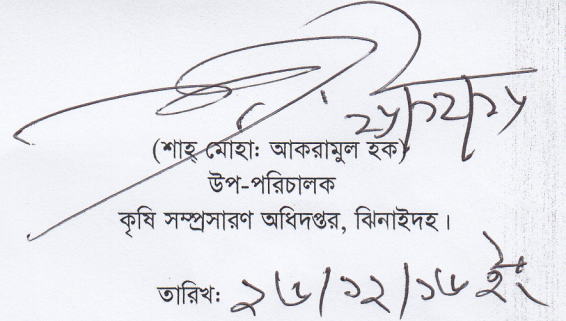 (শাহ্ মোহাঃ আকরামুল হক)
উপ-পরিচালক
কৃষি সম্প্রসারণ অধিদপ্তর, ঝিনাইদহ।
তারিখঃ ২৬/১২/১৬ ইং